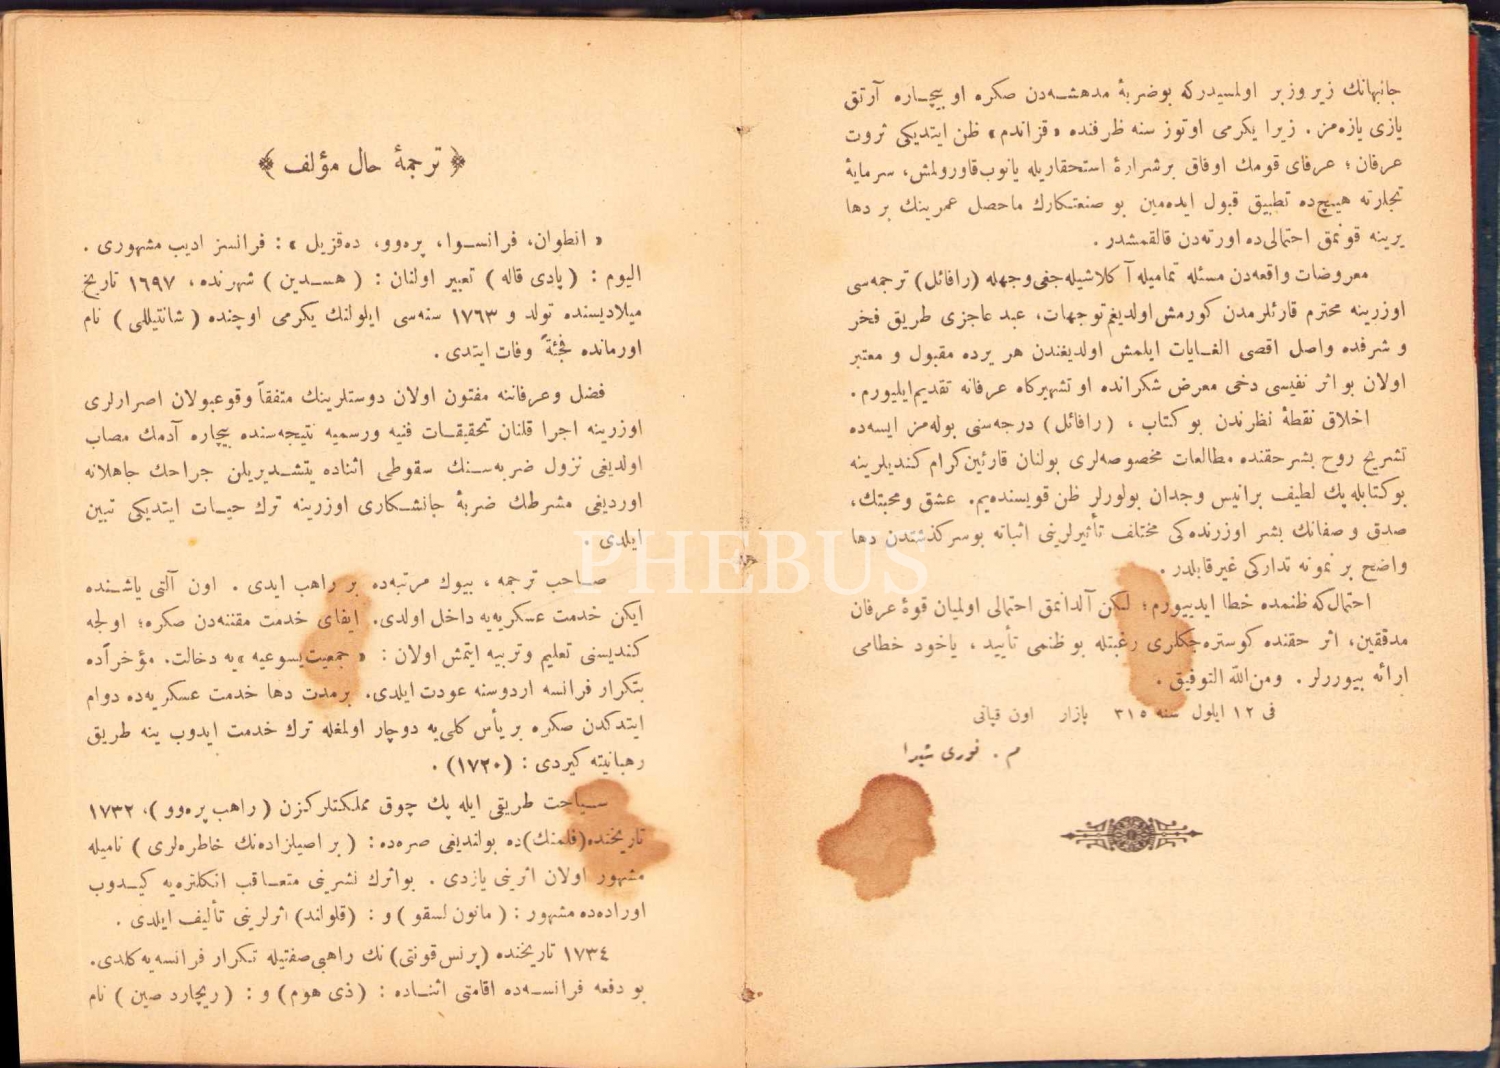 جانبهانك زير وزبر اولمسيدركه بوضربهٔ مدهشه‌دن صكره او بيچاره آرتق
يازى يازه‌مز. زيرا يكرمى اوتوز سنه ظرفنده «قزاندم» ظن ايتديكى ثروت
عرفان؛ عرفاى قومك اوفاق برشرارهٔ استحقاريله يانوب‌قاورولمش، سرمايهٔ
تجارته هيچ‌ده تطبيق قبول ايده‌مين بو صنعتكارك ماحصل عمرينك بر دها
يرينه قونمق احتمالى‌ده اورته‌دن قالقمشدر.
معروضات واقعه‌دن مسئله تماميله آكلاشيله‌جغى‌وجهله (رافائل) ترجمه‌سى
اوزرينه محترم قارئلرمدن كورمش‌اولديغم‌توجهات، عبد عاجزى طريق فخر
و شرفده واصل اقصى الغايات ايلمش اولديغندن هر يرده مقبول و معتبر
اولان بو اثر نفيسى دخى معرض شكرانده او تشهيركاه عرفانه تقديم‌ايليورم.
اخلاق نقطهٔ نظرندن بو كتاب، (رافائل) درجه‌سنى بوله‌مز ايسه‌ده
تشريح روح بشرحقنده مطالعات مخصوصه‌لرى بولنان قارئين‌كرام كنديلرينه
بوكتابله پك لطيف برانيس وجدان بولورلر ظن قويسنده‌يم. عشق ومحبتك،
صدقى و صفانك بشر اوزرنده‌كى مختلف تأثيرلرينى اثباته بوسركذشتدن دها
واضح بر نمونه تداركى غيرقابلدر.
احتمال‌كه ظنمده خطا ايدييورم؛ لكن آلدانمق احتمالى اولميان قوهٔ عرفان
مدققين، اثر حقنده كوستره‌جكلرى رغبتله بو ظنمى تأييد، ياخود خطامى
ارائه بيوررلر. ومن‌الله التوفيق.
فى ١٢ ايلول سنه ٣١٥ بازار اون قپانى
م. فوزى شيرا
ترجمهٔ حال مؤلف
« انطوان، فرانسوا، پره‌وو، ده‌قزيل »: فرانسز اديب مشهورى.
اليوم: (پادى قاله) تعبير اولنان: (هسدين) شهرنده، ١٦٩٧ تاريخ
ميلاديسنده تولد و ١٧٦٣ سنه‌سى ايلولنك يكرمى اوچنده (شانتيللى) نام
اورمانده فجئةً وفات ايتدى.
فضل وعرفاننه مفتون اولان دوستلرينك متفقاً وقوعبولان اصرارلرى
اوزرينه اجرا قلنان تحقيقات فنيه ورسميه نتيجه‌سنده بيچاره آدمك مصاب
اولديغى نزول ضربه‌سنك سقوطى اثناده يتشديريلن جراحك جاهلانه
اورديغى مشرطك ضربهٔ جانشكارى اوزرينه ترك حيات ايتديكى تبين
ايلدى.
صاحب ترجمه، بيوك مرتبه‌ده بر راهب ايدى. اون آلتى ياشنده
ايكن خدمت عسكريه‌يه داخل اولدى. ايفاى خدمت مقننه‌دن صكره؛ اولجه
كنديسنى تعليم وتربيه ايتمش اولان: «جمعيت‌يسوعيه»يه دخالت. مؤخراًده
بتكرار فرانسه اردوسنه عودت ايلدى. برمدت دها خدمت عسكريه‌ده دوام
ايتدكدن صكره بر يأس كلى‌يه دوچار اولمغله ترك خدمت ايدوب ينه طريق
رهبانيته كيردى: (١٧٢٠).
سياحت طريقى ايله پك چوق مملكتلركزن (راهب پره‌وو)، ١٧٣٢
تاريخنده(فلمنك)ده بولنديغى صره‌ده: (بر اصيلزاده‌نك خاطره‌لرى) ناميله
مشهور اولان اثرينى يازدى. بواثرك نشرينى متعاقب انكلتره‌يه كيدوب
اوراده‌ده مشهور: (مانون لسقو) و: (قلولند) اثرلرينى تأليف ايلدى.
١٧٣٤ تاريخنده (پرنس‌قونتى)نك راهبى‌صفتيله تكرار فرانسه‌يه‌كلدى.
بو دفعه فرانسه‌ده اقامتى اثناده: (ذى هوم) و: (ريچارد صين) نام
PHEBUS